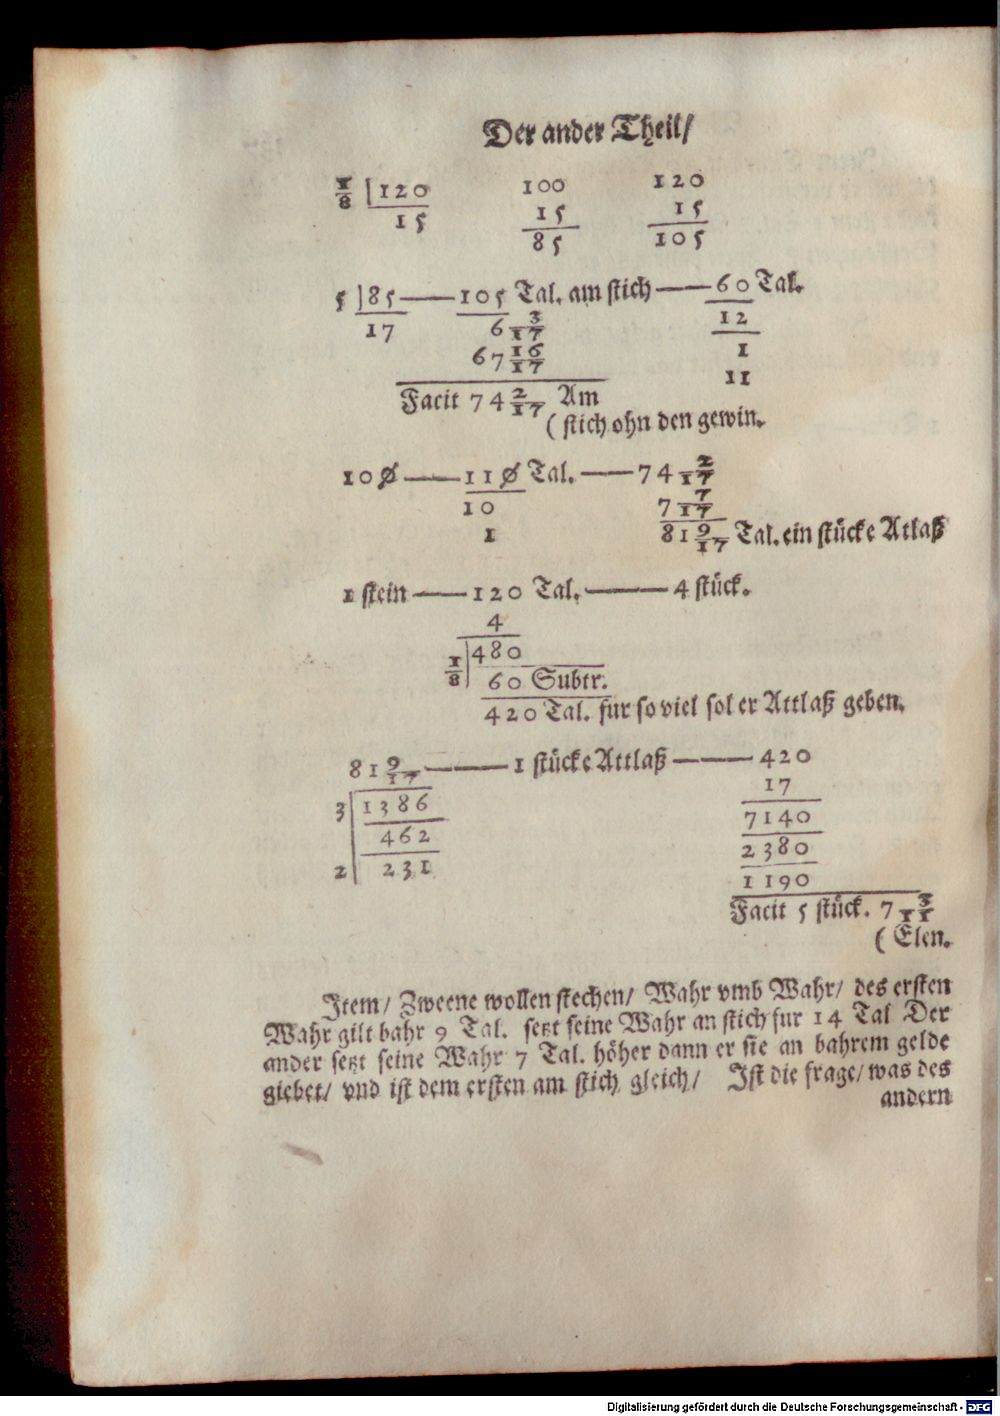 Der ander Theil/
1/8 | 120 100 120
15 15 15
85 105
5 | 85 —— 105 Tal. am stich —— 60 Tal.
17 6 3/17 12
67 16/17 1
11
Facit 74 2/17 Am
( stich ohn den gewin.
100 —— 110 Tal. —— 74 2/17
10 7 7/17
1 81 9/17 Tal. ein stücke Atlaß
1 stein —— 120 Tal. —— 4 stück.
4
1/8 | 480
60 Subtr.
420 Tal. fur so viel sol er Attlaß geben.
81 9/17 —— 1 stücke Attlaß —— 420
17
3 | 1386 7140
462 2380
2 | 231 1190
Facit 5 stück. 7 3/11
( Elen.
Item/ Zweene wollen stechen/ Wahr vmb Wahr/ des ersten
Wahr gilt bahr 9 Tal. setzt seine Wahr an stich fur 14 Tal Der
ander setzt seine Wahr 7 Tal. höher dann er sie an bahrem gelde
giebet/ vnd ist dem ersten am stich gleich/ Ist die frage/ was des
andern
Digitalisierung gefördert durch die Deutsche Forschungsgemeinschaft - DFG